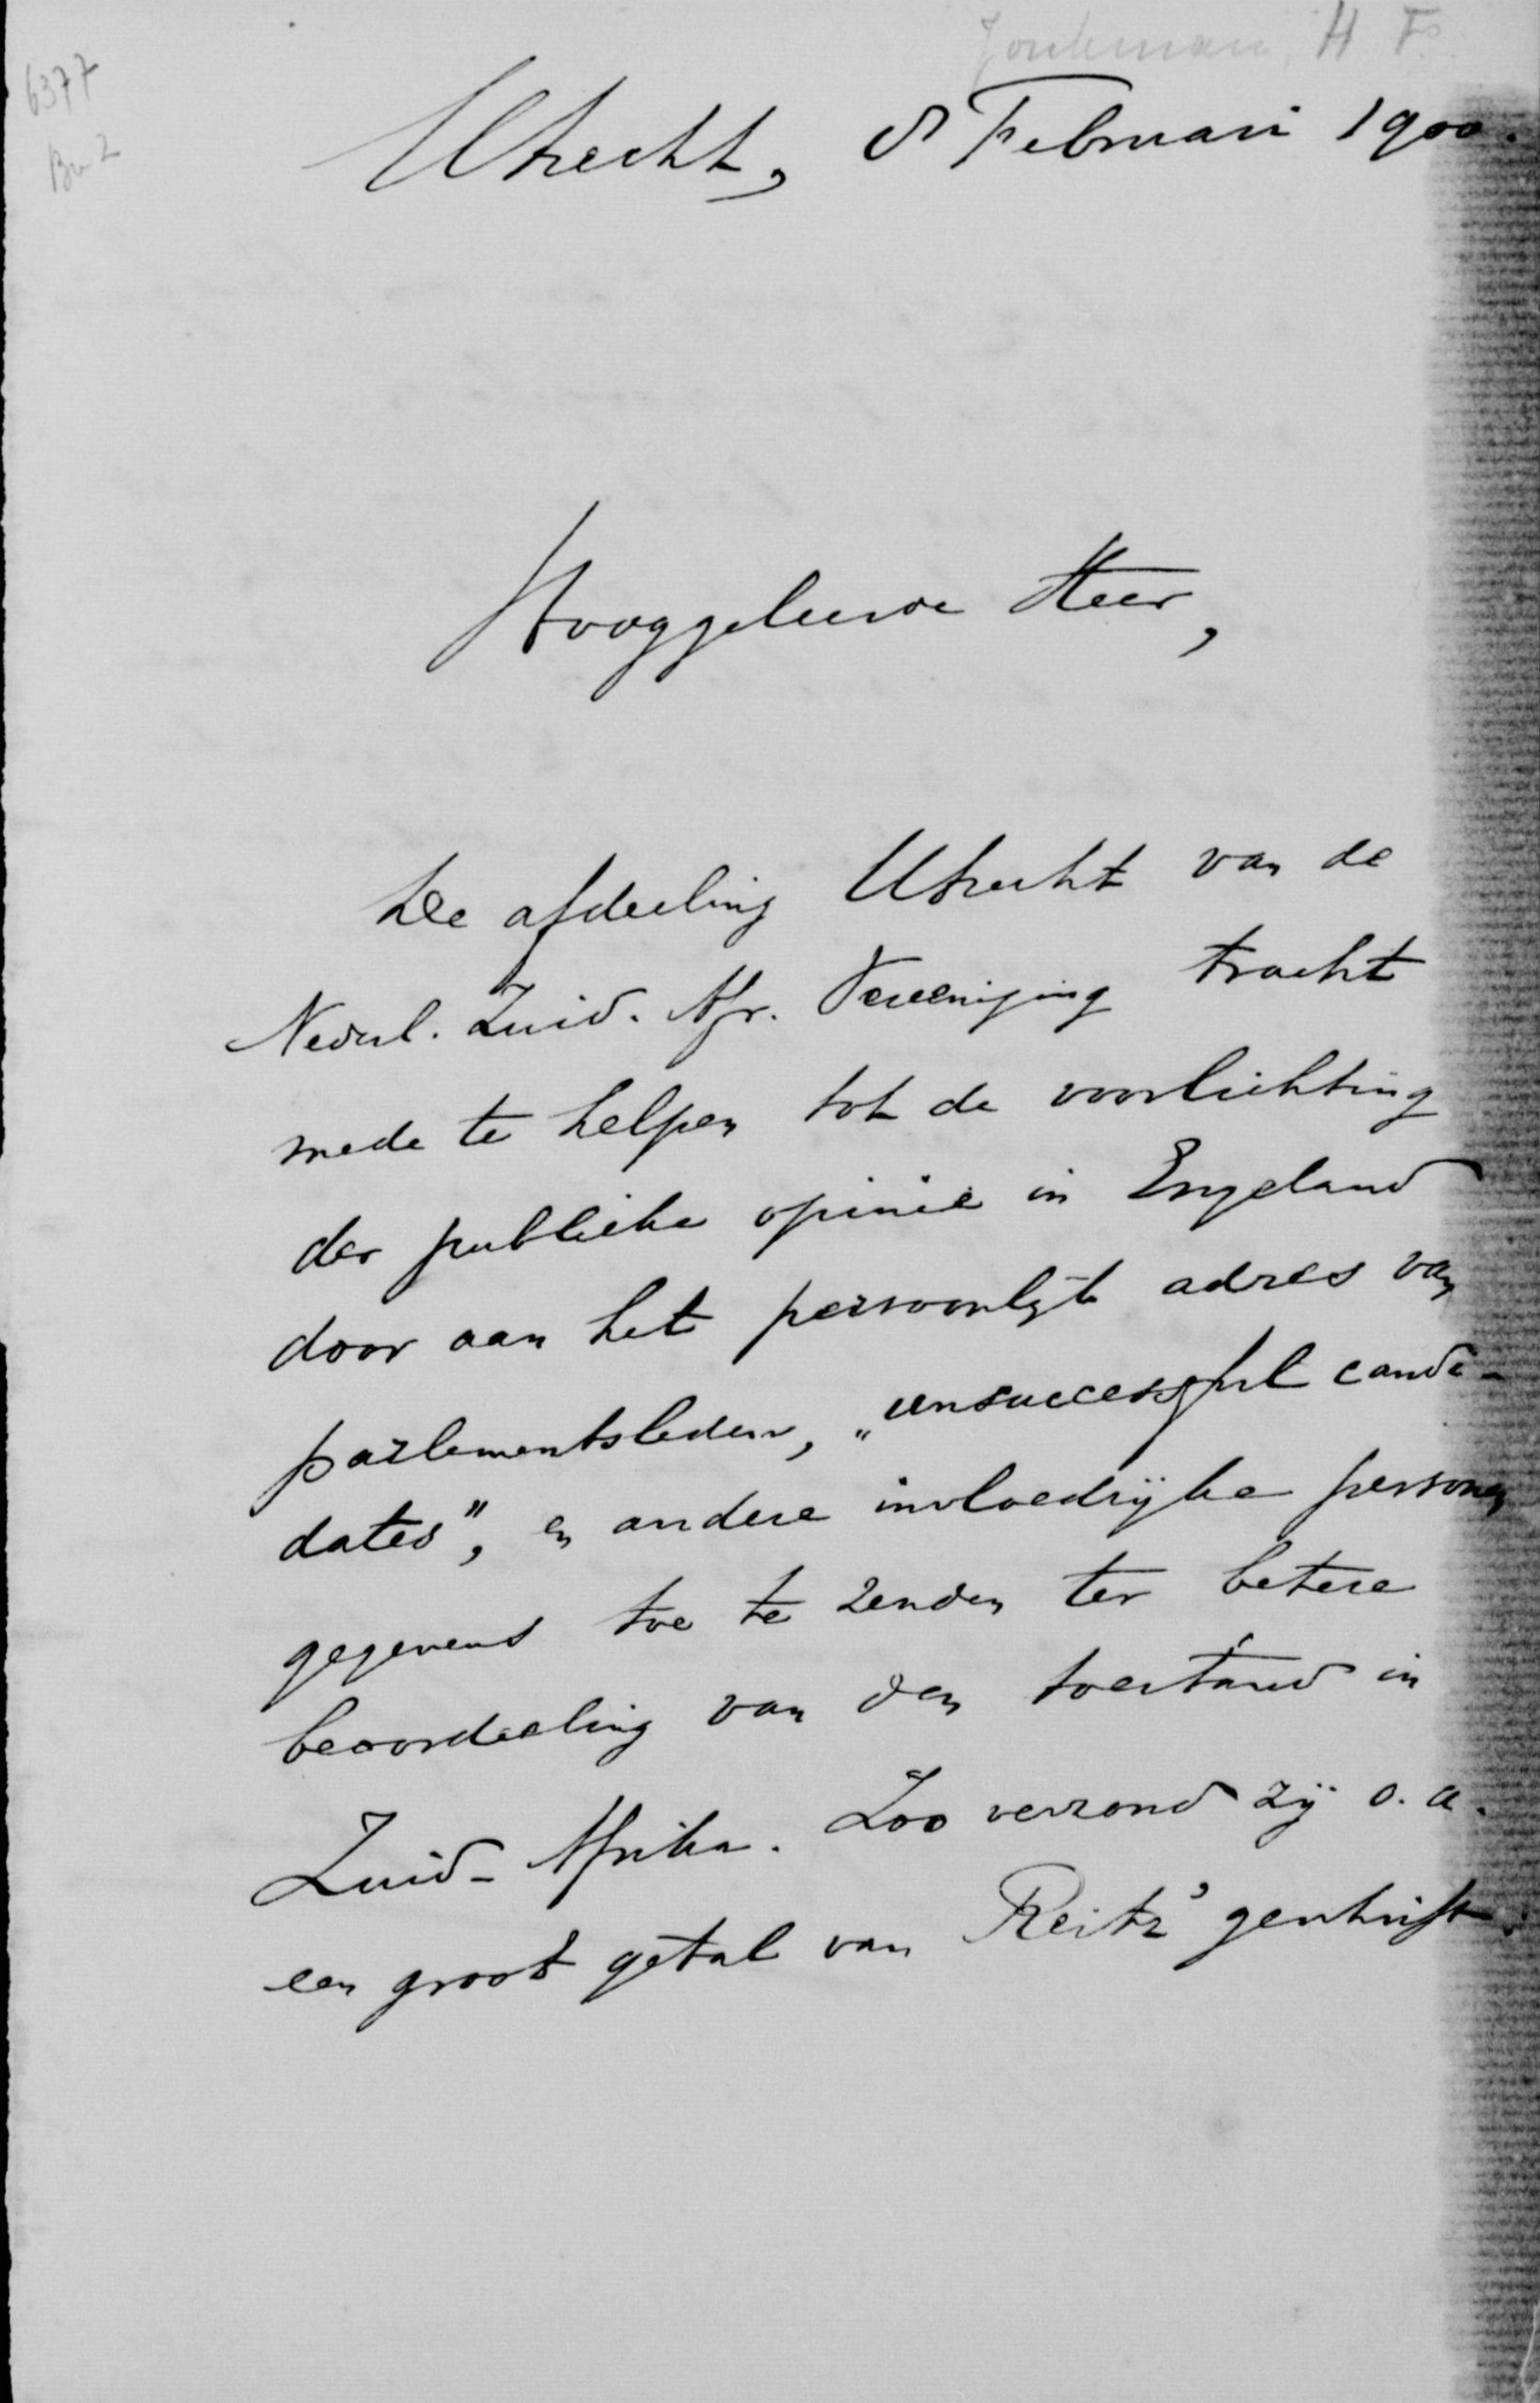 6377
Bu 2
H F
Utrecht, 8 Februari 1900.
Hooggeleerde Heer,
De afdeeling Utrecht van de
Nederl. Zuid. Afr. Vereeniging tracht
mede te helpen tot de voorlichting
der publieke opinie in Engeland
door aan het persoonlijk adres van
parlementsleden, „unsuccessful candi-
dates", en andere invloedrijke personen
gegevens toe te zenden ter betere
beoordeeling van den toestand in
Zuid-Afrika. Zoo verzond zij o.a.
een groot getal van Reitz' geschrift.